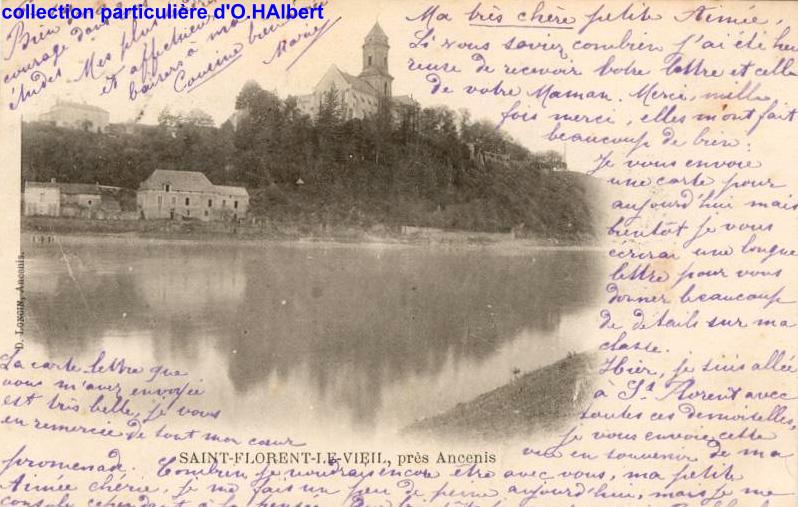 collection particulière d'O.HAlbert
Ma très chère petite Aimée,
Si vous saviez combien j'ai été heu
reuse de recevoir votre lettre et celle
de votre Maman. Merci, mille
fois merci, elles m'ont fait
beaucoup de bien.
Je vous envoie
une carte pour
aujourd'hui mais
bientôt je vous
écrirai une longue
lettre pour vous
donner beaucoup
de détails sur ma
classe.
Hier, je suis allée
à St Florent avec
toutes ces demoiselles,
je vous envoie cette
vue en souvenir de ma
promenade. Combien je voudrais encore être avec vous, ma petite
Aimée chérie, je me fais un peu de peine aujourd'hui, mais je me
console cependant à la pensée
La carte lettre que
vous m'avez envoyée
est très belle, je vous
en remercie de tout mon cœur
Bien
courage dans
études Mes plus
et affectueux
baisers à ma
Cousine bien
D. LONGIN, Ancenis.
SAINT-FLORENT-LE-VIEIL, près Ancenis